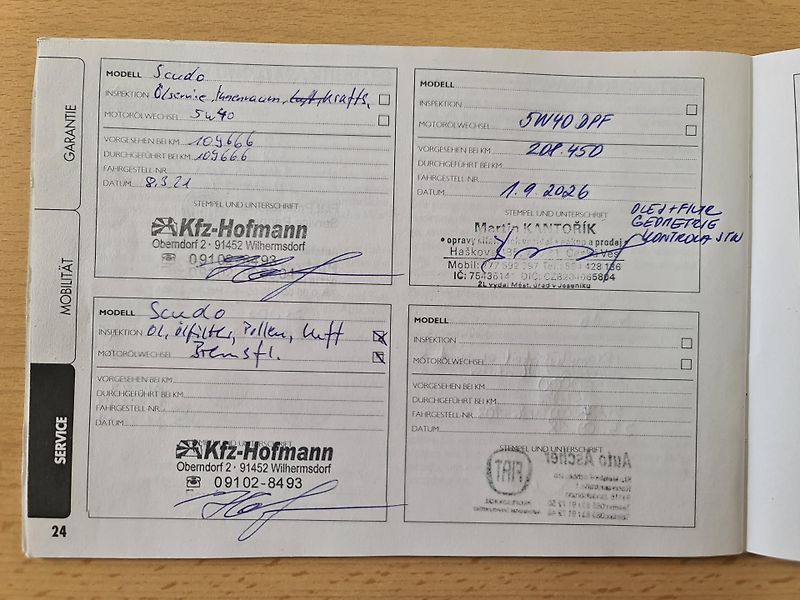 GARANTIE
MOBILITÄT
SERVICE
24
MODELL Scudo
INSPEKTION Ölservice, Innenraum, Luft, Krafts,
MOTORÖLWECHSEL 5W40
VORGESEHEN BEI KM 109666
DURCHGEFÜHRT BEI KM 109666
FAHRGESTELL-NR.
DATUM 8.3.21
STEMPEL UND UNTERSCHRIFT
Kfz-Hofmann
Oberndorf 2 · 91452 Wilhermsdorf
09102-8493
MODELL Scudo
INSPEKTION Öl, Ölfilter, Pollen, Luft
MOTORÖLWECHSEL Bremsfl.
VORGESEHEN BEI KM
DURCHGEFÜHRT BEI KM
FAHRGESTELL-NR.
DATUM
STEMPEL UND UNTERSCHRIFT
Kfz-Hofmann
Oberndorf 2 · 91452 Wilhermsdorf
09102-8493
MODELL
INSPEKTION
MOTORÖLWECHSEL 5W40 DPF
VORGESEHEN BEI KM 208.450
DURCHGEFÜHRT BEI KM
FAHRGESTELL-NR.
DATUM 1.9.2026
STEMPEL UND UNTERSCHRIFT
OLEJ + FILTR
GEOMETRIE
KONTROLA STK
Martin KANTOŘÍK
• opravy prodej •
Mobil: Tel.:
IČ: DIČ:
ŽL vydal Měst. úřad v Jeseníku
MODELL
INSPEKTION
MOTORÖLWECHSEL
VORGESEHEN BEI KM
DURCHGEFÜHRT BEI KM
FAHRGESTELL-NR.
DATUM
STEMPEL UND UNTERSCHRIFT
Auto Ascher
FIAT